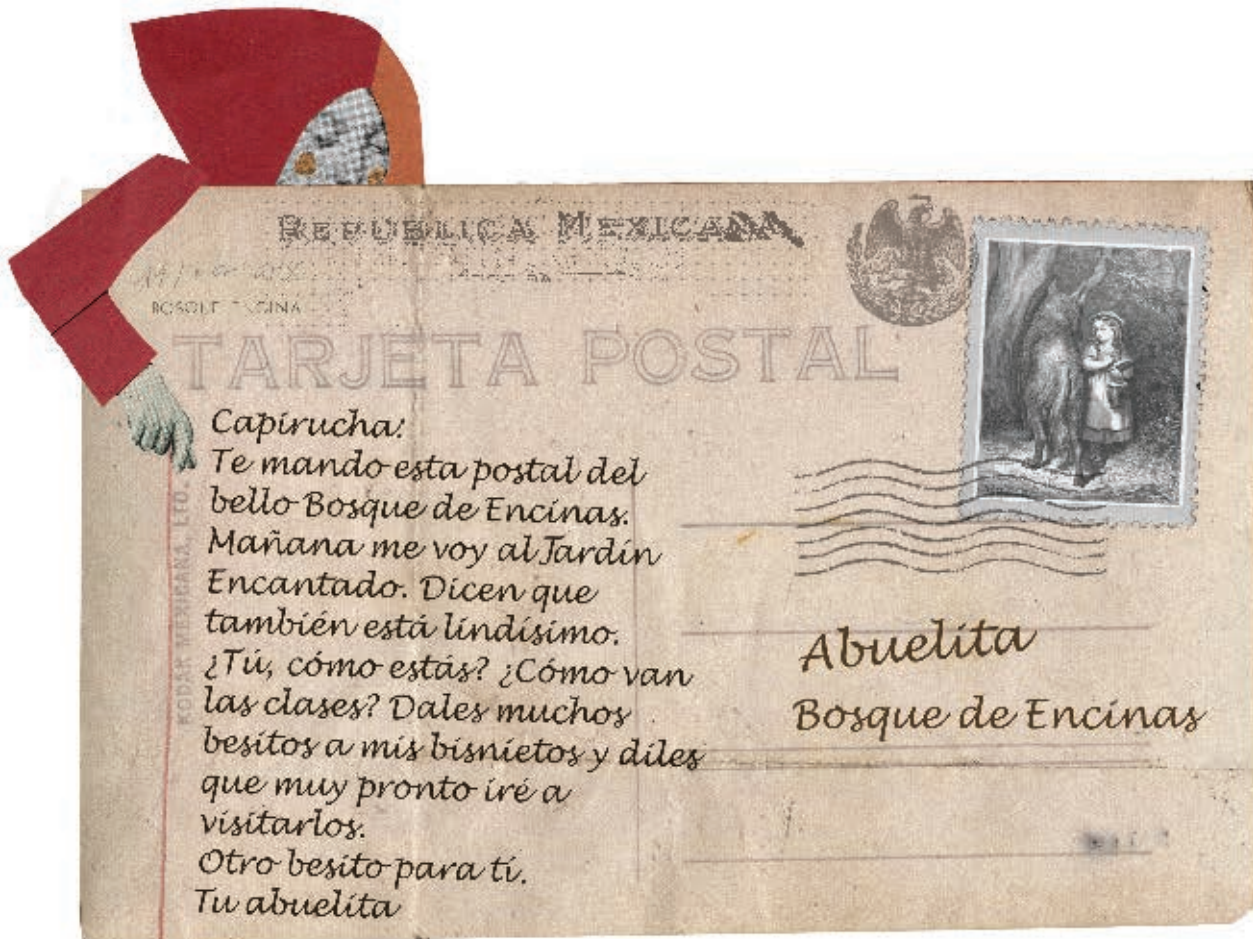 REPUBLICA MEXICANA
TARJETA POSTAL
KODAK MEXICANA, LTD.
Capirucha:
Te mando esta postal del
bello Bosque de Encinas.
Mañana me voy al Jardín
Encantado. Dicen que
también está lindísimo.
¿Tú, cómo estás? ¿Cómo van
las clases? Dales muchos
besitos a mis bisnietos y diles
que muy pronto iré a
visitarlos.
Otro besito para ti.
Tu abuelita
Abuelita
Bosque de Encinas